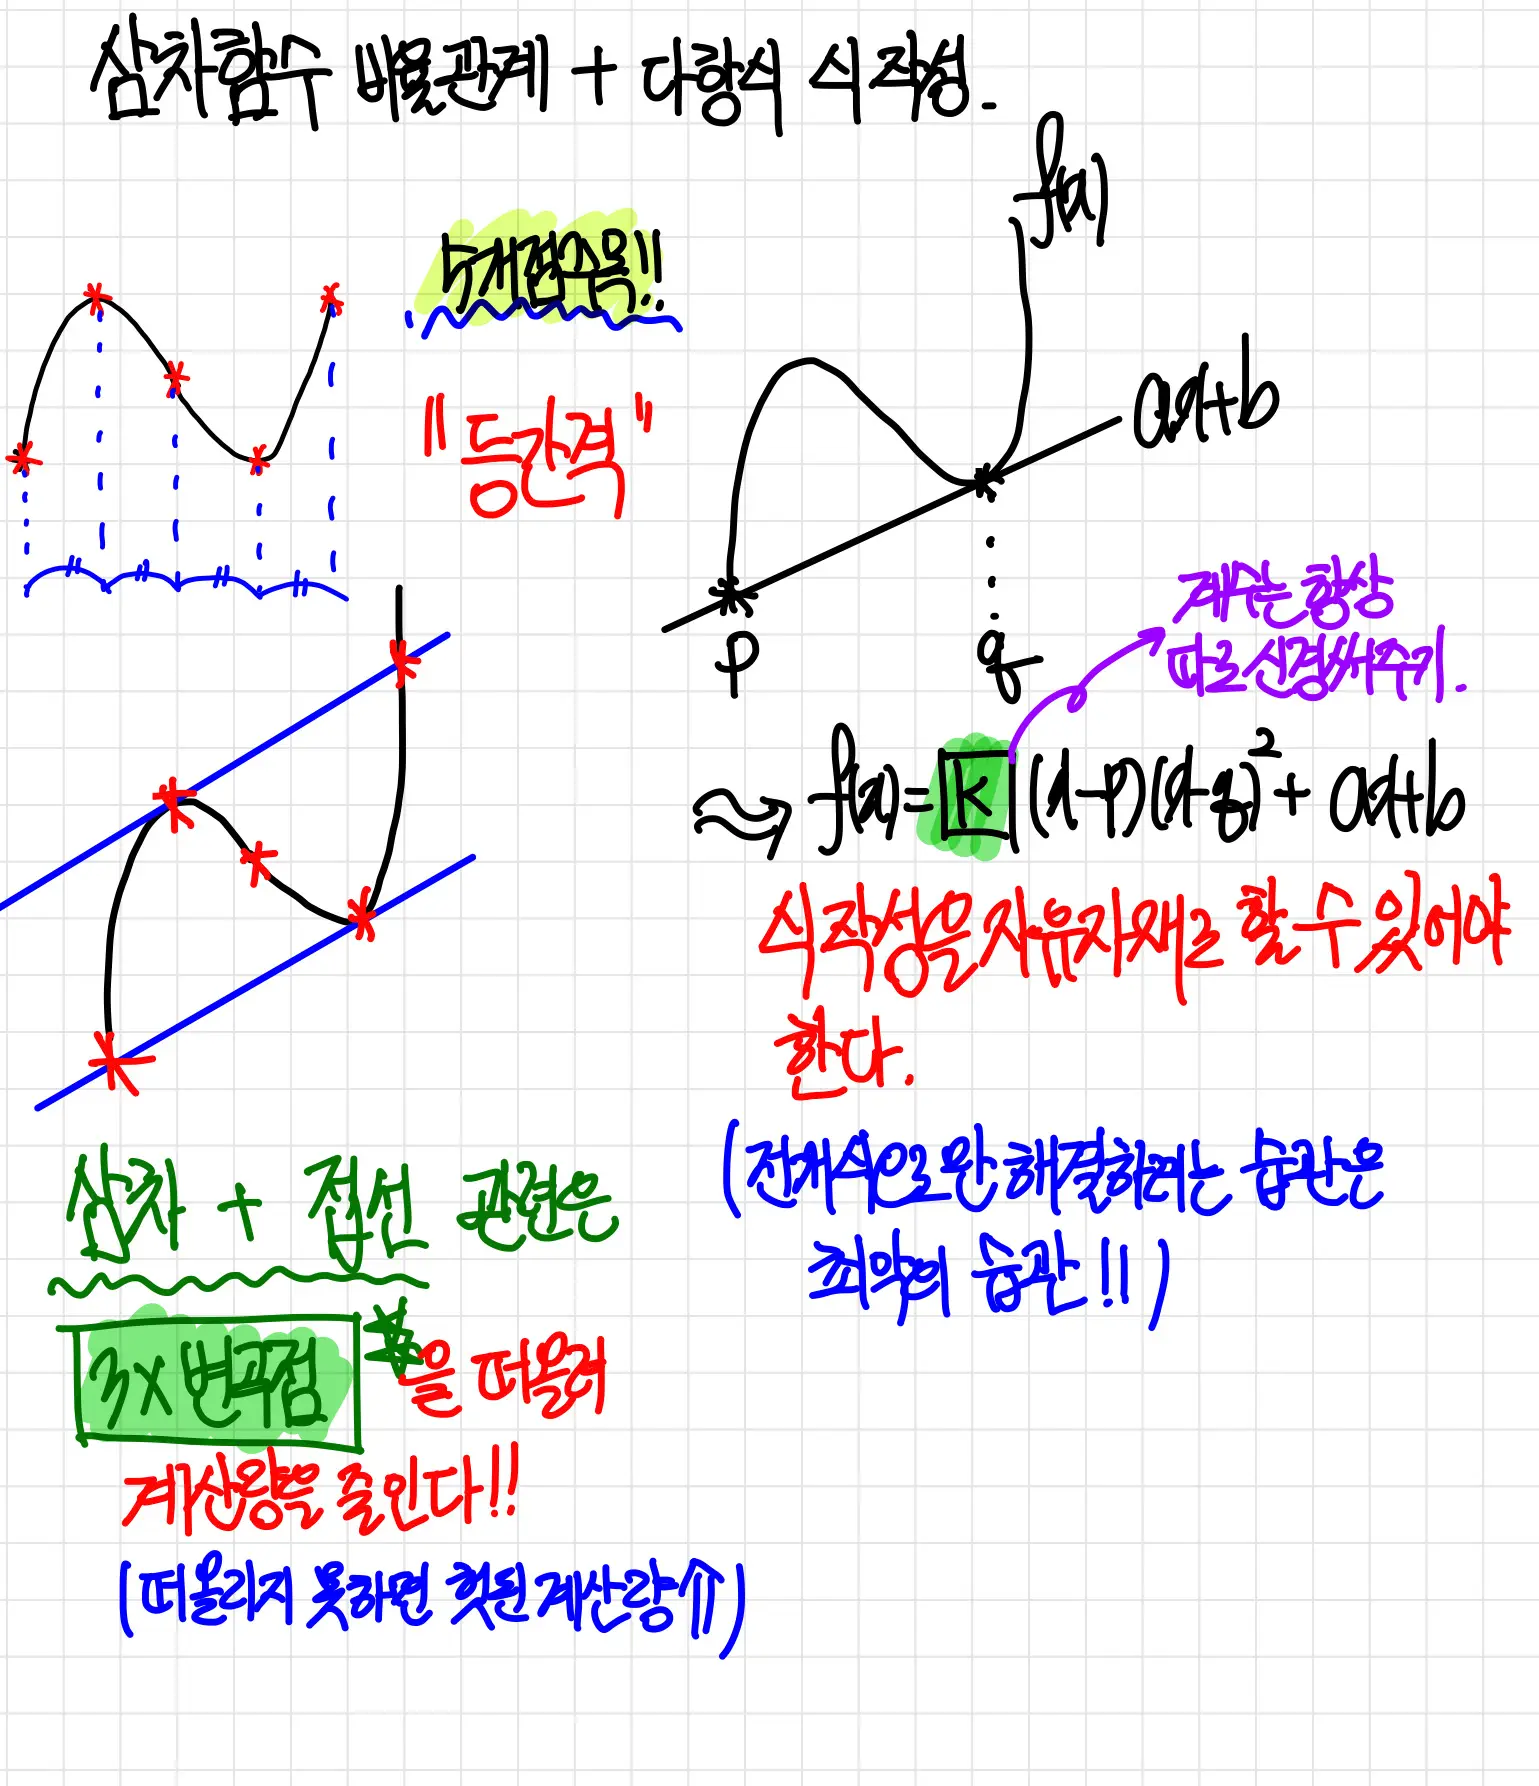 삼차함수 비율관계 + 다항식 식 작성.
5개 점 주목!!
"등간격"
f(x)
ax+b
p
q
계수는 항상
따로 신경써주기.
f(x)= k (x-p)(x-q)² + ax+b
식 작성을 자유자재로 할 수 있어야
한다.
(전개식으로만 해결하려는 습관은
최악의 습관!!)
삼차 + 접선 관련은
3x변곡점 을 떠올려
계산량을 줄인다!!
(떠올리지 못하면 헛된 계산량⇑)